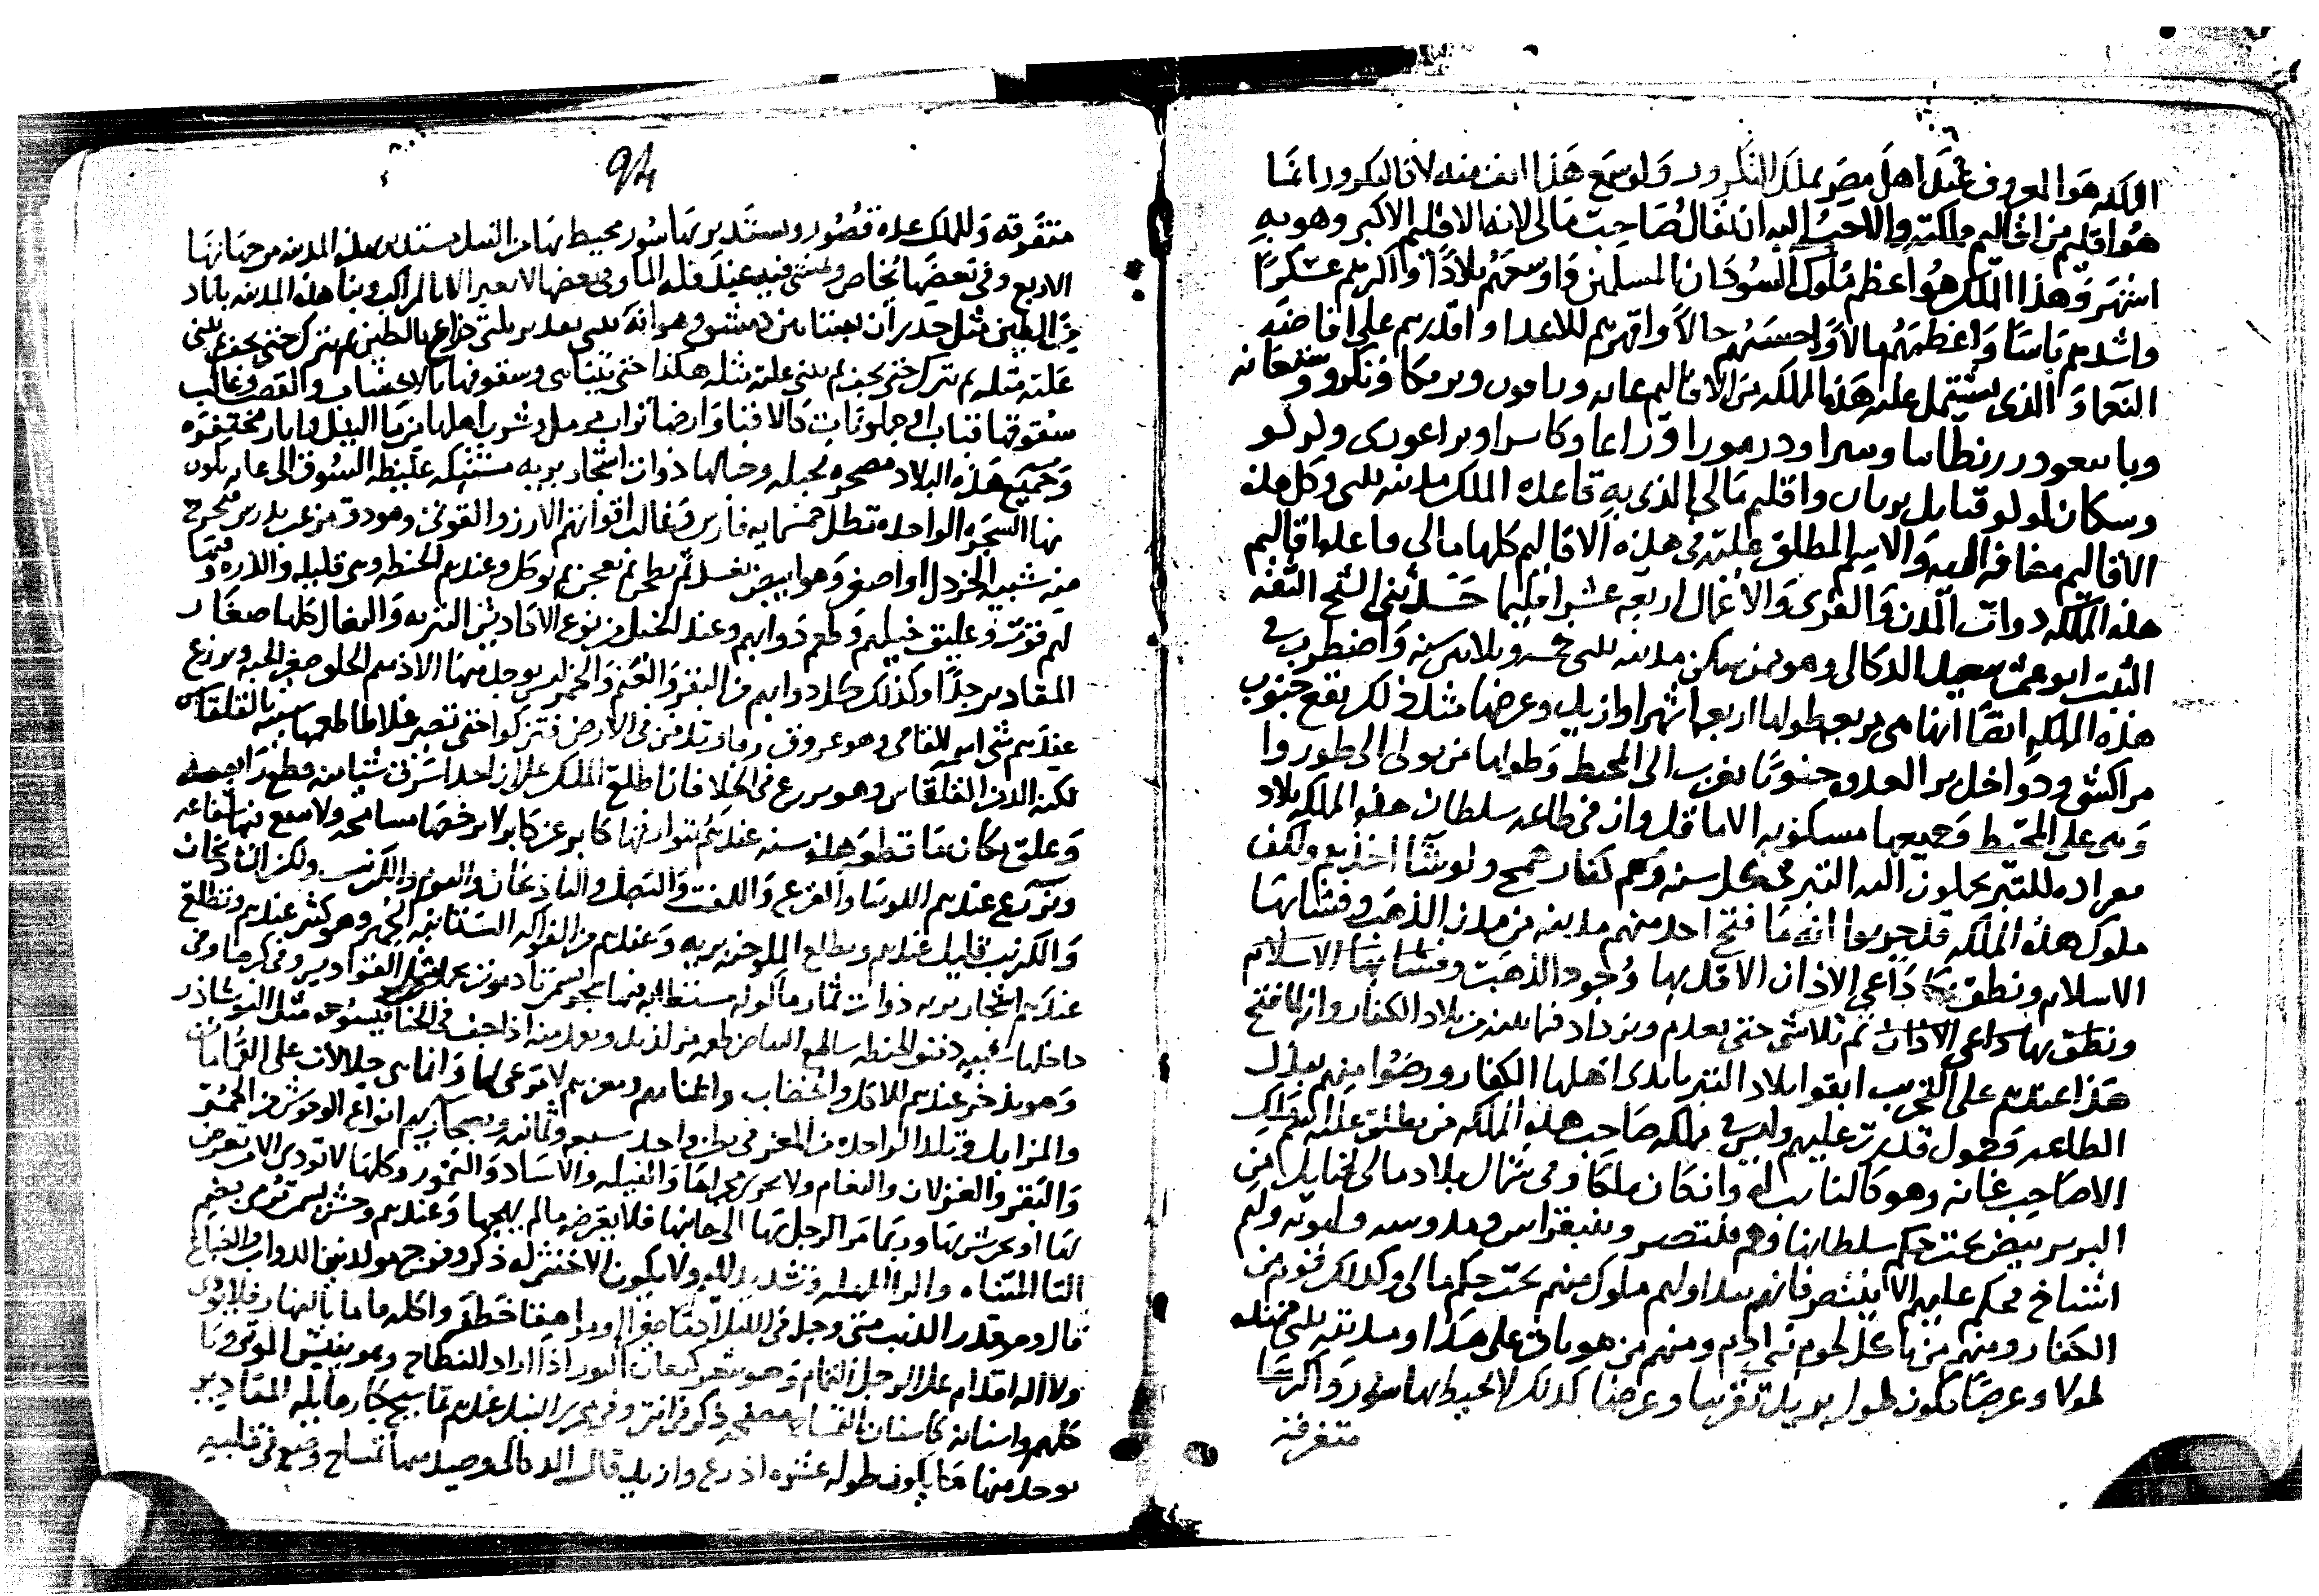 المملكة هو المعروف عند اهل مصر بملك التكرور ولو سمع هذا انف منه لان التكرور انما
هو اقليم من اقاليم مملكته والاحب اليه ان يقال صاحب مالى لانه الاقليم الاكبر وهو به
اشهر وهذا الملك هو اعظم ملوك السودان المسلمين واوسعهم بلادا واكثرهم عسكرا
واشدهم باسا واعظمهم مالا واحسنهم حالا واقهرهم للاعدا واقدرهم على افاضة
النعما والذى يشتمل عليه هذه المملكة من الاقاليم غانه وزافون وترنكا وتكرور وسنغانه
وبانبعو وزرنطابنا وبيترا ودمورا وزاغا وكابرا وبراغورى وكوكو
وسكان كوكو قبايل يرنان واقليم مالى الذى به قاعدة الملك مدينة بنبى وكل هذه
الاقاليم مضافه اليه والاسم المطلق عليه فى هذه الاقاليم كلها مالى قاعدة اقاليم
هذه المملكه ذوات المدن والقرى والاعمال اربعة عشر اقليما حدثنى الشيخ الثقه
الثبت ابو عثمن سعيد الدكالى وهو ممن سكن مدينة بنبى خمسه وثلاثين سنه واضطرب فى
هذه المملكه انها مربعه طولها اربعة اشهر او ازيد وعرضها مثل ذلك تقع جنوب
مراكش ودواخل بر العدوه جنوبا بغرب الى المحيط وطولها من مولى الى طورا
وهى على المحيط وجميعها مسكونه الا ما قل وان فى طاعة سلطان هذه المملكه بلاد
مفازه للتبر يحملون اليه التبر فى كل سنه وهم كفار همج ولو شا اخذهم ولكن
ملوك هذه المملكه قد جربوا انه ما فتح احد منهم مدينه من مدن الذهب وفشا بها
الاسلام ونطق بها داعى الاذان الا قل بها وجود الذهب وفشا بها الاسلام
ونطق بها داعى الاذان ثم تلاشى حتى يعدم ويزداد فيما يليه من بلاد الكفار وانه لما صح
هذا عندهم على التجريب ابقوا بلاد التبر بايدى اهلها الكفار ورضوا منهم ببذل
الطاعه وحمول قررت عليهم وليس فى مملكة صاحب هذه المملكه من يطلق عليه اسم ملك
الا صاحب غانه وهو كالنايب له وان كان ملكا وفى شمال بلاد مالى قبايل من
البربر بيض تحت حكم سلطانها وهم ينتصر وتينغراس ومدوسه ولمتونه ولهم
اشياخ تحكم عليهم الا ينتصر فانهم يتداولهم ملوك منهم تحت حكم مالى وكذلك قوم من
الكفار ومنهم من ياكل لحوم بنى ادم ومنهم من هو باق على هذا ومدينة بنبى ممتده
طولا وعرضا تكون طول بريد تقريبا وعرضها كذلك لا يحيط بها سور واكثرها
متفرقه
٩٤
متفرقه وللملك عدة قصور يستدير بها سور محيط بها من النيل يستدير بهذه المدينه من جهاتها
الاربع وفى بعضها يخاض ويمشى فيه عند قلة الما وفى بعضها لا يعبر الا بالمراكب وبنا هذه المدينه باياد
من الطين مثل جدران بساتين دمشق وهو انه يبنى بقدر ثلثى ذراع بالطين ثم يترك حتى يجف ثم يبنى
عليه مثله ثم يترك حتى يجف ثم يبنى عليه مثله هكذا حتى ينتهى وسقوفها بالاخشاب والقصب وغالب
سقوفها قباب او جملونات كالاقبا وارضها تراب مرمل وشرب اهلها من ما النيل وابار محتفره
وجميع هذه البلاد مصحره مجبله وجبالها ذوات اشجار بريه مشتبكه غليظة السوق الى غايه يكون
منها الشجرة الواحده تظل خمسمايه فارس وغالب اقواتهم الارز والفونى وهو دق مزغب يدرس فيخرج
منه شبيه الخردل او اصغر وهو ابيض يغسل ثم يطحن ثم يعجن ثم يوكل وعندهم الحنطه وهى قليله والذره وفيها
لهم قوت وعليق خيلهم وطعم دوابهم وعندهم الخيل من نوع الاكاديش التتريه والبغال كلها صغار
المقادير جدا وكذلك كل دوابهم من البقر والغنم والحمير ليس يوجد منها الا ذميم الخلق صغير الجثه ويزرع
عندهم شى اسمه القافى وهو عروق رقاق تدفن فى الارض فتترك حتى تصير غلاظا طعمها شبيه بالقلقاس
لكنه الذ من القلقاس وهو يزرع فى الخلا فاذا اطلع الملك على ان احدا سرق شيا منه قطع راسه
وعلقه مكان ما قطعه هذه سنه عندهم يتوارثها كابر عن كابر لا يرخصها مسامحه ولا تنفع فيها شفاعه
وتزرع عندهم اللوبيا والقرع واللفت والبصل والباذنجان والثوم والكرنب ولكن الباذنجان
والكرنب قليل عندهم وتطلع الملوخيه بريه وعندهم من الفواكه البستانيه الجميز وهو كثير عندهم وتطلع
عندهم اشجار بريه ذوات ثمار ماكوله مستطابه فيها شجر يسمى تادموت يحمل مثل القواديس وفى كبرها وفى
داخلها شبيه دقيق الحنطه ساطع البياض طعمه مز لذيذ
وهو يدخر عندهم للاكل والخضاب واغنامهم ومعزهم لا مرعى لها وانما هى جلالات على القمامات
والمزابل وتلد الواحده من المعز فى بطن واحد سبعه وثمانيه وبصحاريهم انواع الوحوش من الحمر
والبقر والغزلان والنعام ولا يجرى مجراها والفيله والاساد والنمور وكلها لا توذى الا من تعرض
لها او تحرش بها وربما مر الرجل بها الى جانبها فلا تعرض له ما لم يهجها وعندهم وحش يسمى ترمى بضم
التا المثناه والرا المهمله وتشديد الميم ولا يكون الا خنثى له ذكر وفرج مولد بين الدواب والضباع
قال وهو قدر الذيب متى وجد فى الليل ادميا صغيرا او مراهقا خطفه واكله واما بالنهار فلا يوذى
ولا له اقدام على الرجل التمام وهو ينعر كنعار الثور اذا اراد النطاح وهو ينبش الموتى ويا
كلهم واسنانه كاسنان التمساح مصفحه ذكر فى انثى وفى بحر النيل عندهم تماسيح كبار هايلة المقادير
يوجد منها ما يكون طوله عشرة اذرع وازيد قال الدكالى وصيد منها تمساح وضع فى قلبه